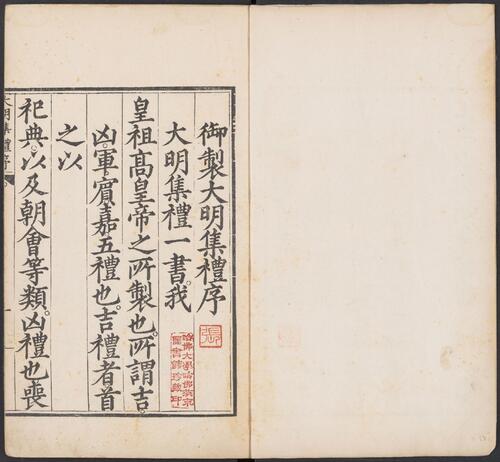 御製大明集禮序
大明集禮一書。我
皇祖高皇帝之所製也。所謂吉。
凶。軍。賓。嘉五禮也。吉禮者首
之以
祀典。以及朝會等類。凶禮也喪
大明集禮序
哈佛大學哈佛燕京
圖書館珍藏印